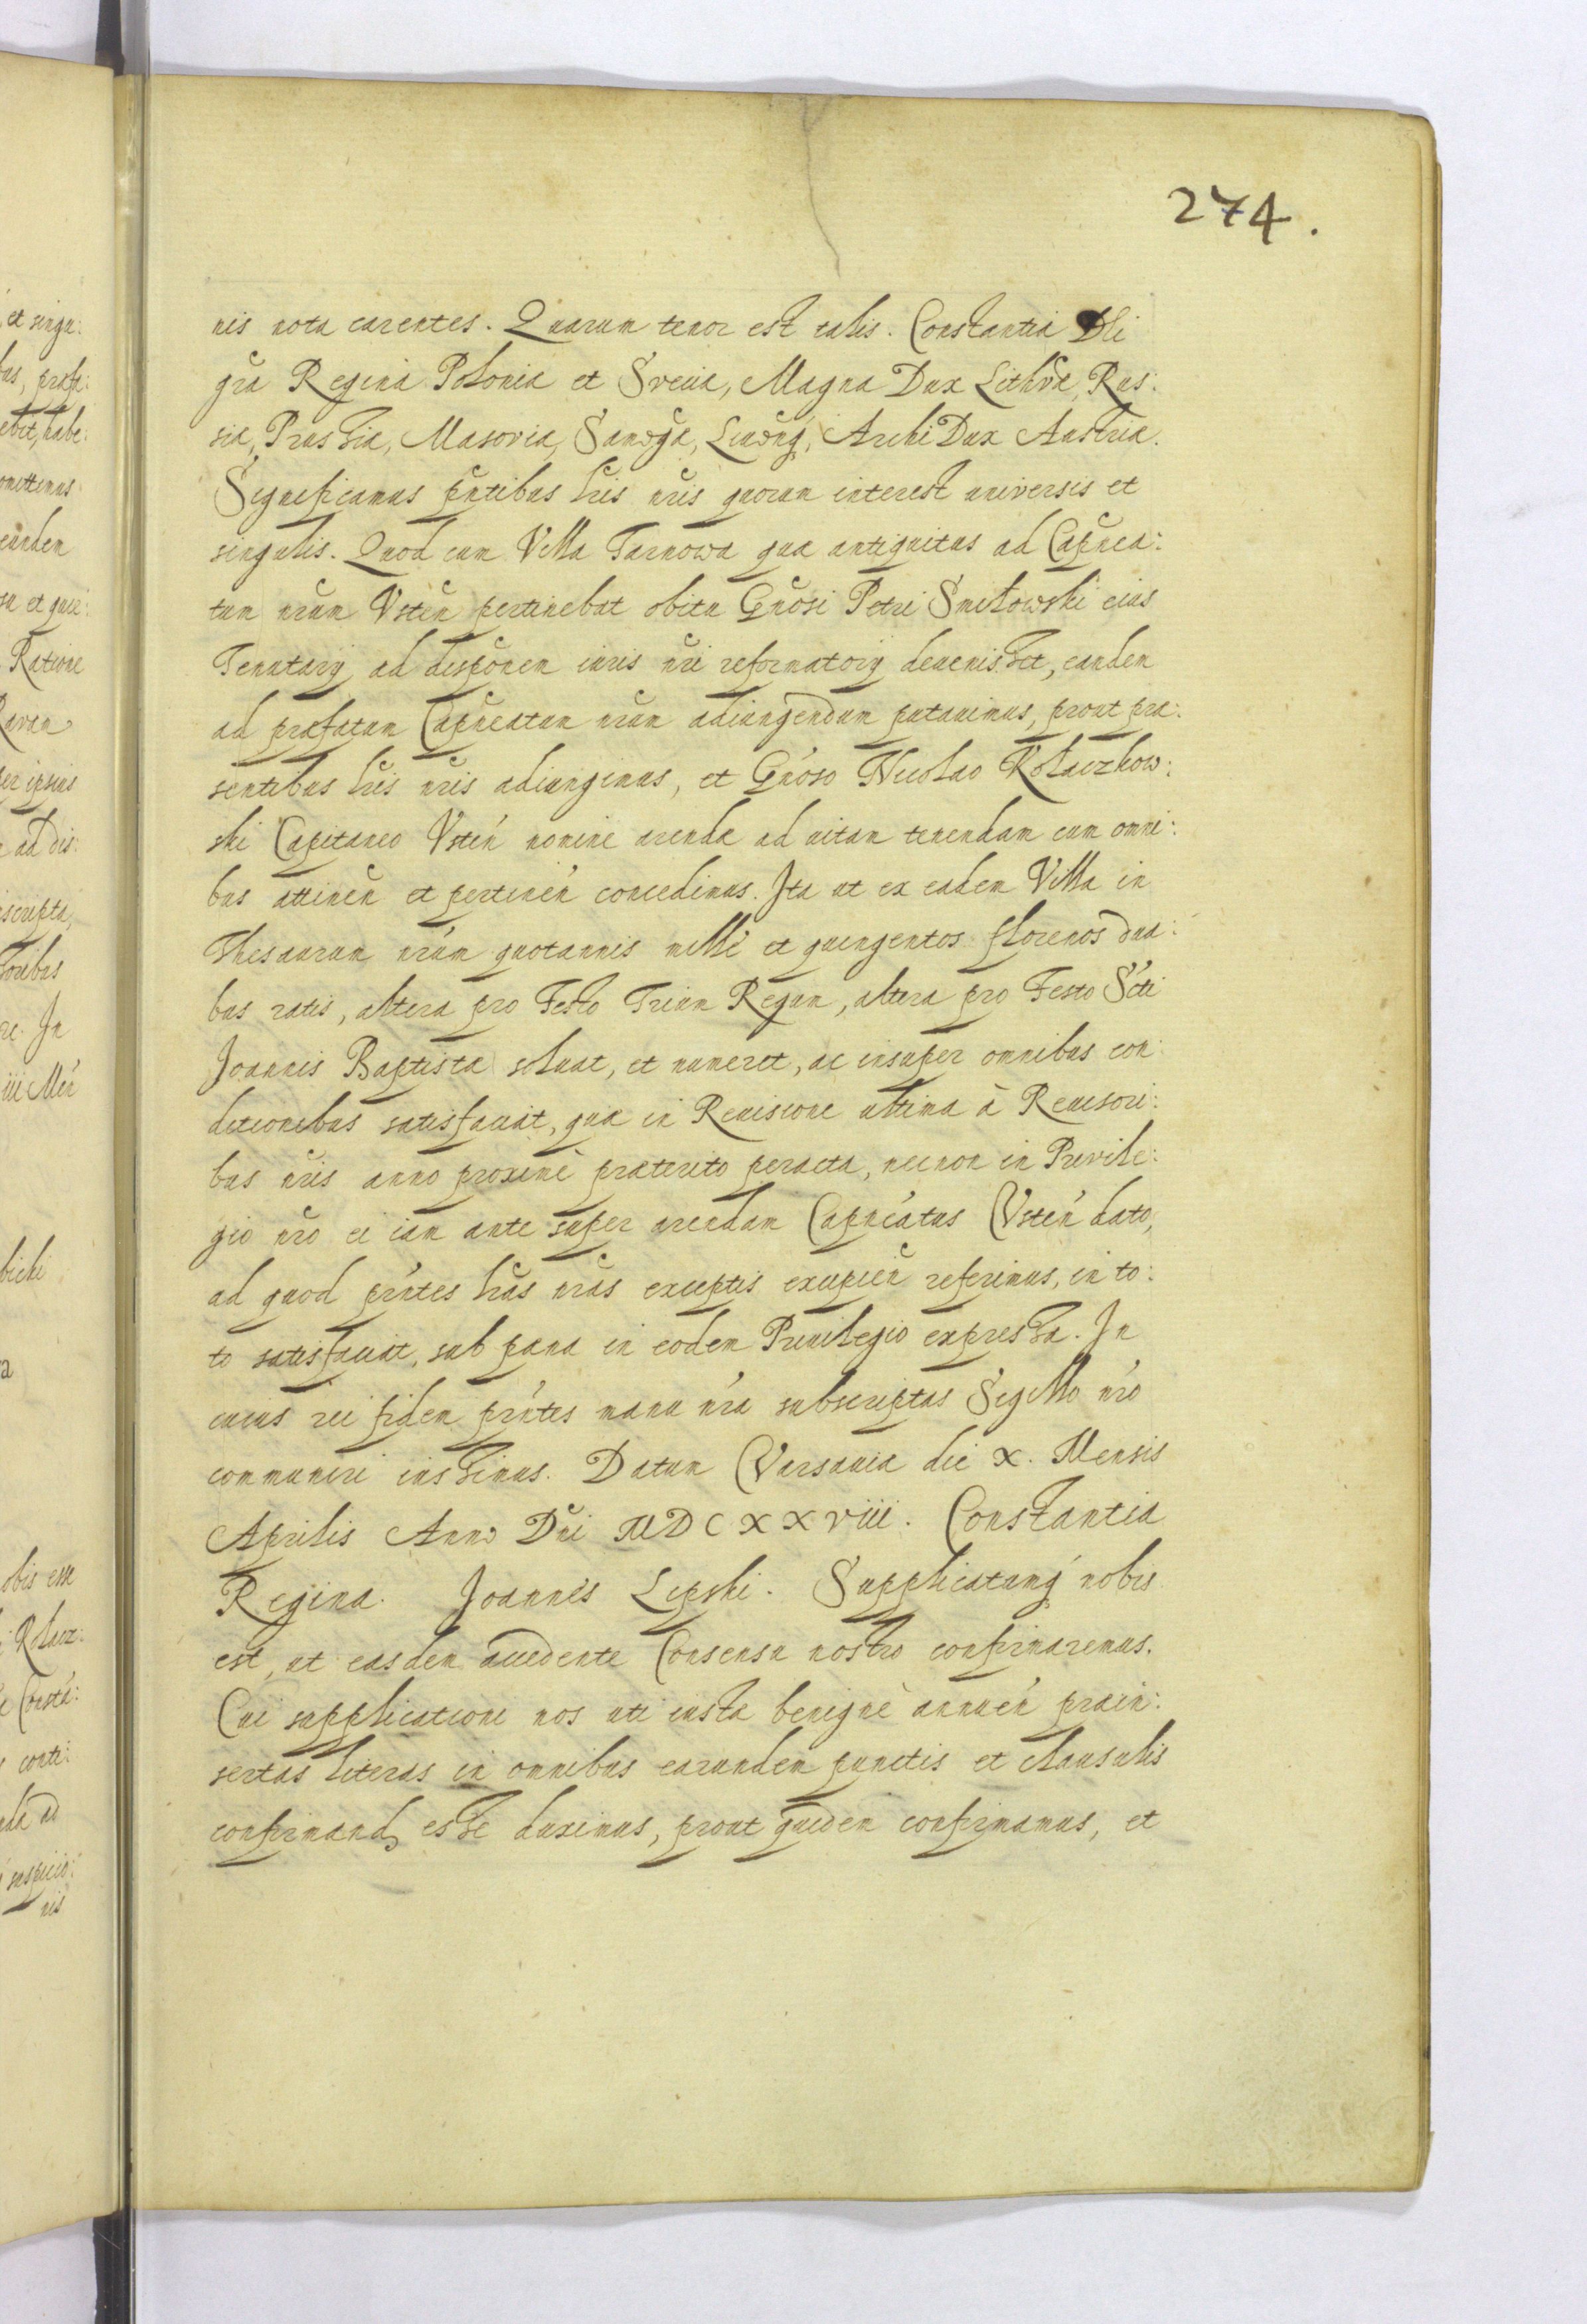 274.
nis nota carentes. Quarum tenor est talis. Constantia Dei
gra Regina Poloniæ et Sveciæ, Magna Dux Lithvæ, Rus:
siæ, Prussiæ, Masoviæ, Samogæ, Livonq, ArchiDux Austriæ.
Significamus pntibus lris nris quorum interest universis et
singulis. Quod cum Villa Tarnowa quæ antiquitus ad Capnea:
tum nrum Vsten pertinebat obitu Gnosi Petri Smilowski eius
Tenutarij ad dispönem iuris nri reformatorij devenisset, eandem
ad præfatum Capneatum nrum adiungendum putavimus, prout præ:
sentibus lris nris adiungimus, et Gnoso Nicolao Kołaczkow:
ski Capitaneo Vsten nomine arendæ ad vitam tenendam cum omni:
bus attinen et pertinen concedimus. Ita ut ex eadem Villa in
Thesaurum nrum quotannis mille et quingentos florenos dua:
bus ratis, altera pro Festo Trium Regum, altera pro Festo Scti
Joannis Baptistæ solvat, et numeret, ac insuper omnibus con
ditionibus satisfaciat, quæ in Revisione ultima à Revisori:
bus nris anno proximè præterito peracta, necnon in Privile:
gio nro ei iam ante super arendam Capneatus Vsten dato,
ad quod pntes lras nras exceptis excipien referimus, in to:
to satisfaciat, sub pæna in eodem Privilegio expressa. In
cuius rei fidem pntes manu nra subscriptas Sigillo nro
communiri iussimus. Datum Varsaviæ die X. Mensis
Aprilis Anno Dni MDCXXVIII. Constantia
Regina. Joannes Lipski. Supplicatumq nobis
est, ut easdem accedente Consensu nostro confirmaremus.
Cui supplicationi nos uti iustæ benignè annuen præin:
sertas literas in omnibus earundem punctis et clausulis
confirmand esse duximus, prout quidem confirmamus, et